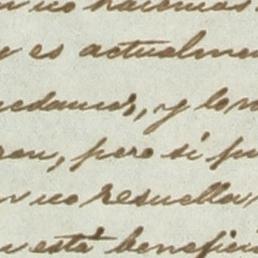 no hacemos
y es actualmen
uedamos, y lo
ron, pero si p
no resuella
está benefici